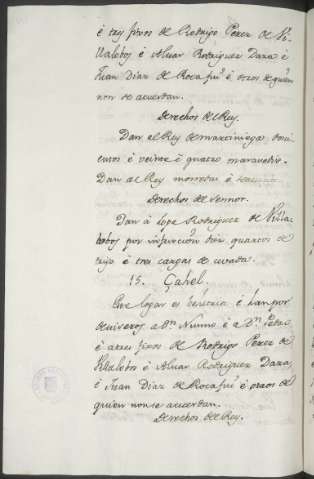 é tres fixos de Rodrigo Perez de Vi-
llalobos é Alvar Rodriguez Daza é
Juan Diaz de Rocafui é otros de quien
non se acuerdan.
Derechos del Rey.
Dan al Rey de martiniega doci-
entos é veinte é quatro maravedis.
Dan al Rey monedas é
Derechos del Sennor.
Dan á Lope Rodriguez de Villa-
lobos por infurcion dos quartos de
trigo é tres cargas de cevada.
15. Çahel.
Este logar es behetria é han por
deviseros a Dn. Nunno é a Dn. Pedro
é a tres fixos de Rodrigo Perez de
Villalobos é Alvar Rodriguez Daza,
é Juan Diaz de Rocafui é otros de
quien non se acuerdan.
Derechos del Rey.